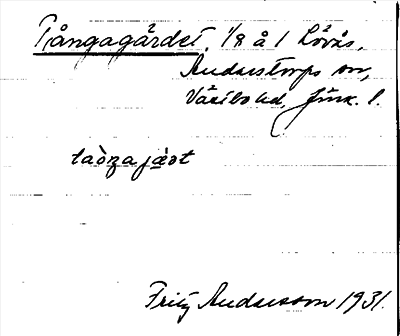 Tångagärdet, 1/8 å 1 Lövås,
Anderstorps sn,
Västbo hd, Jönk. l.
taòŋajæ̀ot
Fritz Andersson 1931.